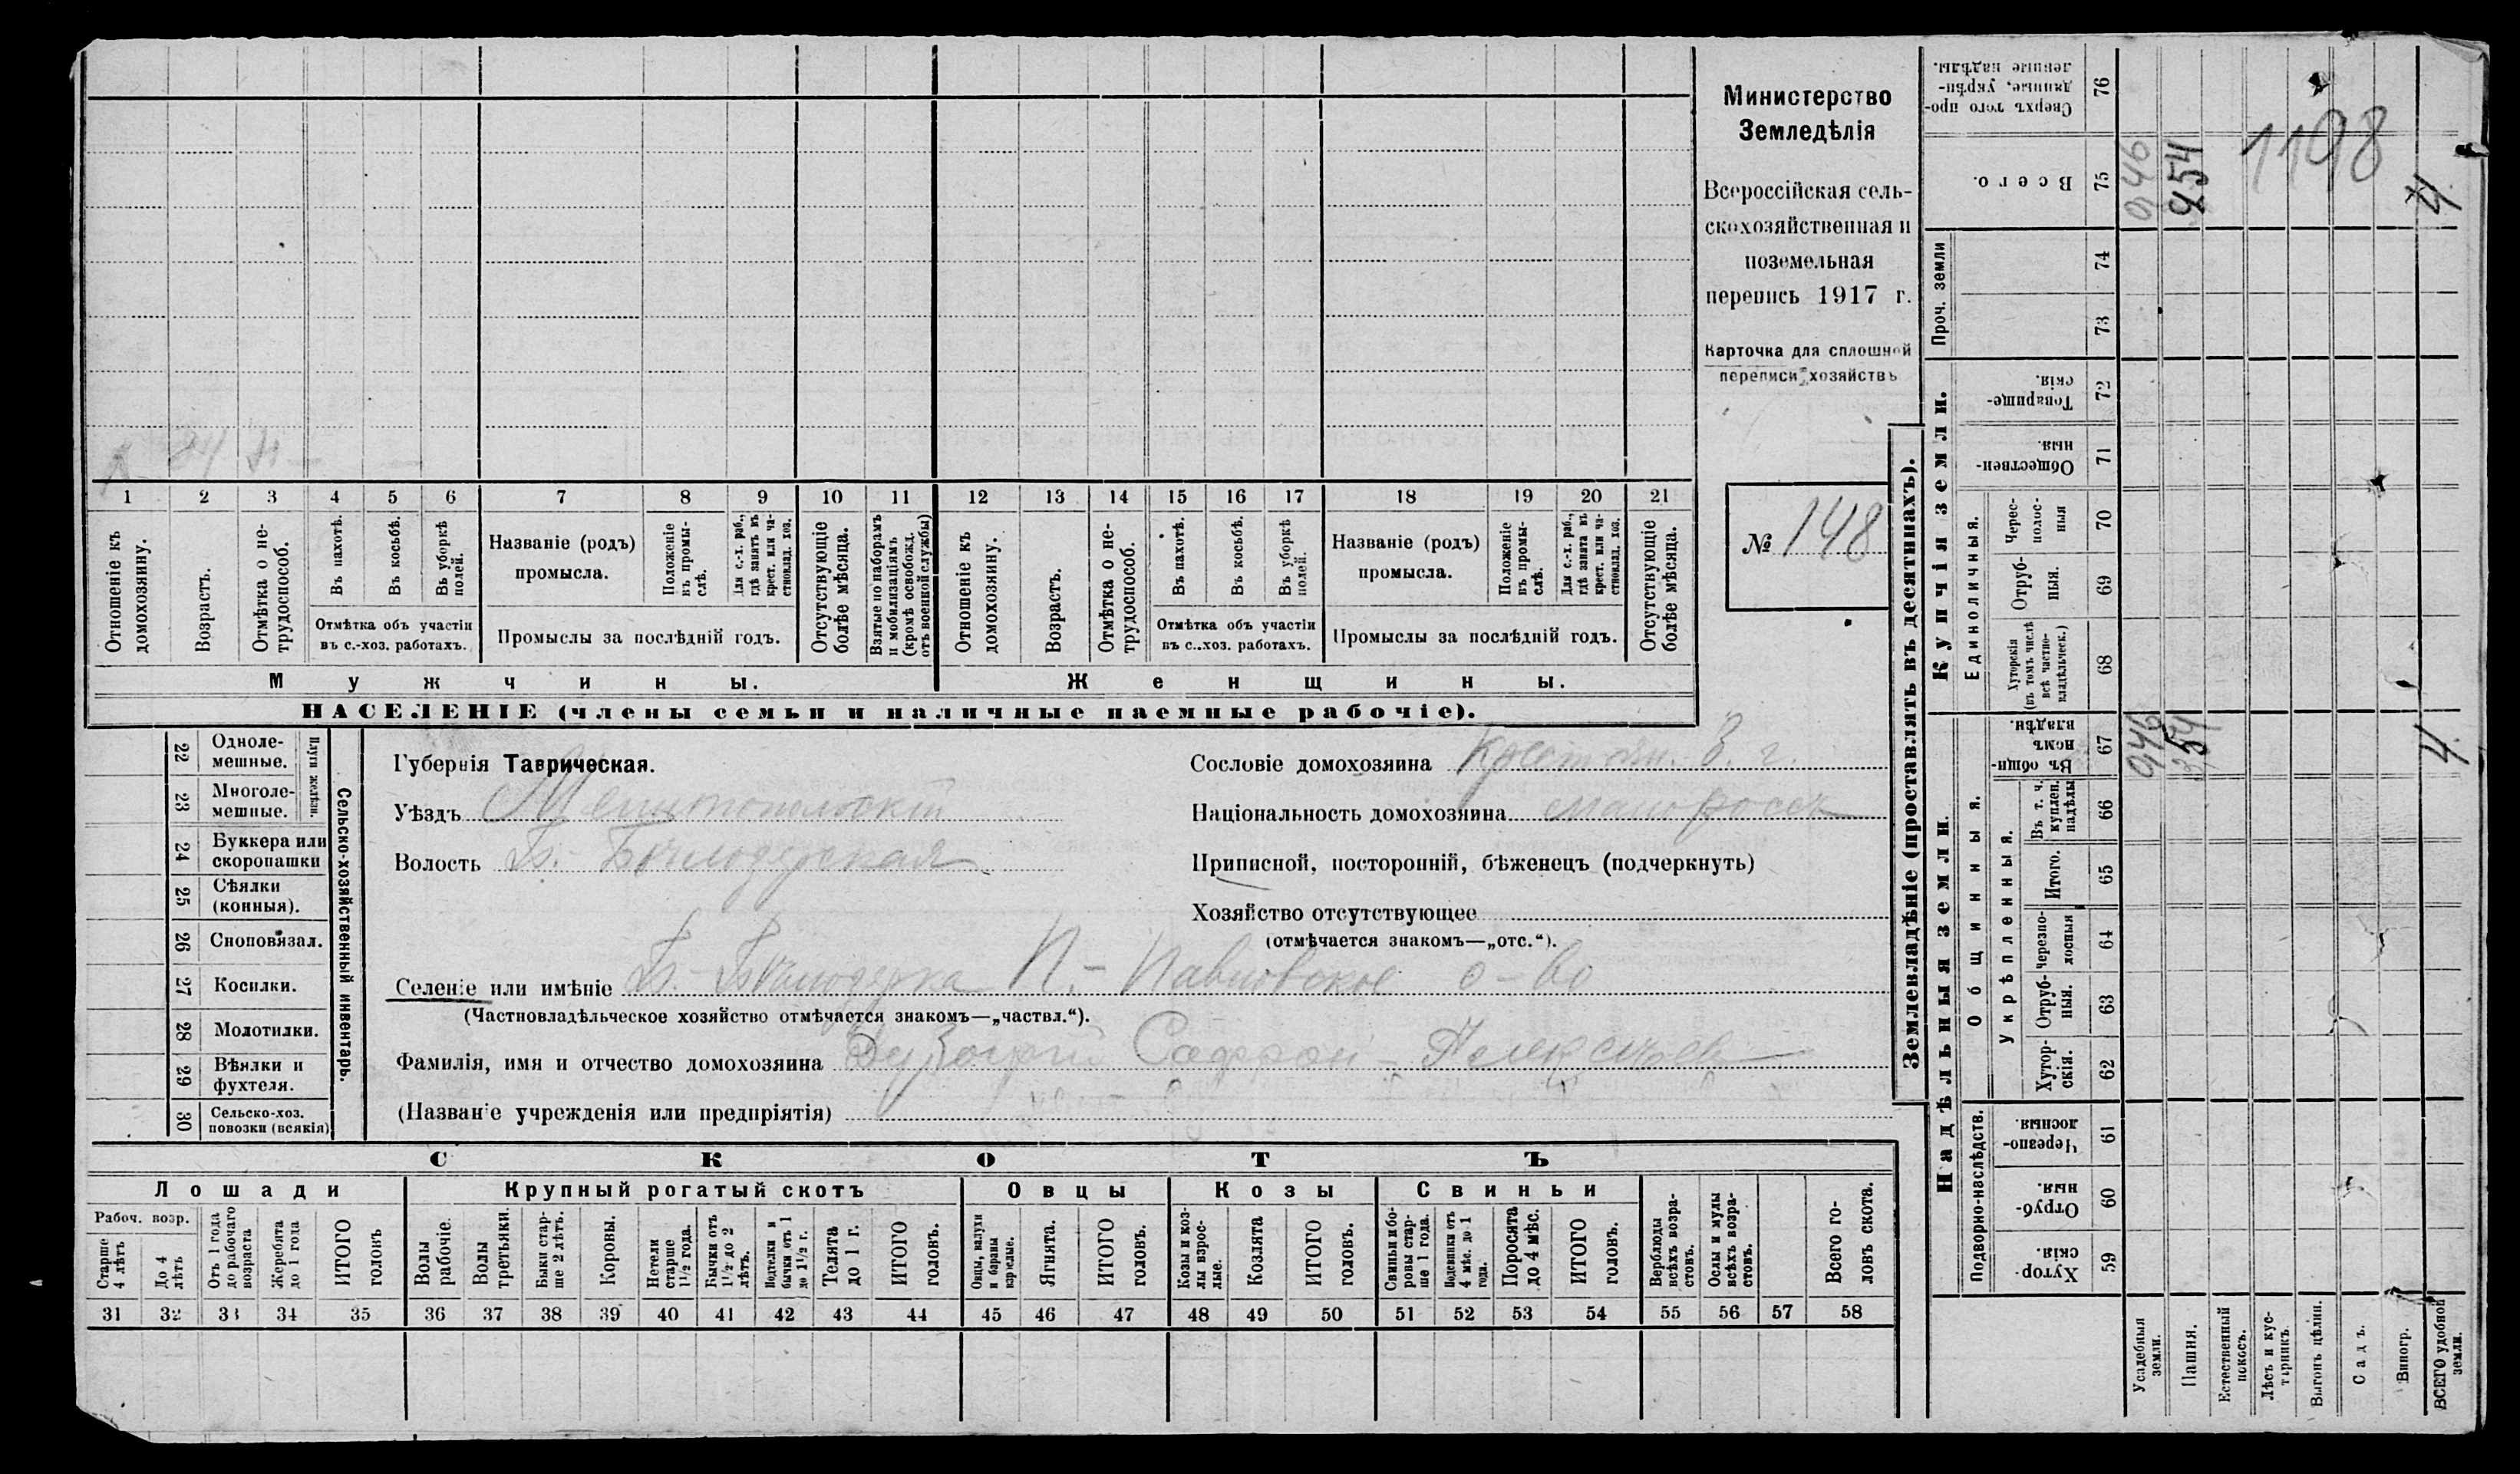 Министерство
Земледѣлія
Всероссійская сель-
скохозяйственная и
поземельная
перепись 1917 г.
Карточка для сплошной
переписи хозяйствъ
№ 148
24
1 2 3 4 5 6 7 8 9 10 11 12 13 14 15 16 17 18 19 20 21
Отношеніе къ домохозяину.
Возрастъ.
Отмѣтка о не-трудоспособ.
Въ пахотѣ.
Въ косьбѣ.
Въ уборкѣ полей.
Отмѣтка объ участіи
въ с.-хоз. работахъ.
Названіе (родъ)
промысла.
Положеніе въ промы-слѣ.
Для с.-х. раб., гдѣ занятъ въ крест. или ча-стновлад. хоз.
Промыслы за послѣдній годъ.
Отсутствующіе болѣе мѣсяца.
Взятые по наборамъ и мобилизаціямъ (кромѣ освобожд. отъ военной службы)
Отношеніе къ домохозяину.
Возрастъ.
Отмѣтка о не-трудоспособ.
Въ пахотѣ.
Въ косьбѣ.
Въ уборкѣ полей.
Отмѣтка объ участіи
въ с.-хоз. работахъ.
Названіе (родъ)
промысла.
Положеніе въ промы-слѣ.
Для с.-х. раб., гдѣ занята въ крест. или ча-стновлад. хоз.
Промыслы за послѣдній годъ.
Отсутствующіе болѣе мѣсяца.
Мужчины.
Женщины.
НАСЕЛЕНІЕ (члены семьи и наличные наемные рабочіе).
22 Одноле-мешные.
23 Многоле-мешные.
Плуги желѣзн.
24 Буккера или скоропашки
25 Сѣялки (конныя).
26 Сноповязал.
27 Косилки.
28 Молотилки.
29 Вѣялки и фухтеля.
30 Сельско-хоз. повозки (всякія)
Сельско-хозяйственный инвентарь.
Губернія Таврическая.
Уѣздъ Мелитопольскій
Волость Б.-Бѣлозерская
Сословіе домохозяина Крестьян.
Національность домохозяина малоросс
Приписной, посторонній, бѣженецъ (подчеркнуть)
Хозяйство отсутствующее
(отмѣчается знакомъ—„отс.“).
Селеніе или имѣніе Б.-Бѣлозерка П.-Павловское о-во
(Частновладѣльческое хозяйство отмѣчается знакомъ—„частвл.“).
Фамилія, имя и отчество домохозяина Сафрон Алексѣев
(Названіе учрежденія или предпріятія)
СКОТЪ
Лошади
Крупный рогатый скотъ
Овцы
Козы
Свиньи
Рабоч. возр.
Старше 4 лѣтъ
До 4 лѣтъ
Отъ 1 года до рабочаго возраста
Жеребята до 1 года
ИТОГО головъ
Волы рабочіе.
Волы третьяки.
Быки стар-ше 2 лѣтъ.
Коровы.
Нетели старше 1½ года.
Бычки отъ 1½ до 2 лѣтъ.
Подтелки и бычки отъ 1 до 1½ г.
Телята до 1 г.
ИТОГО головъ.
Овцы, валухи и бараны взрослые.
Ягнята.
ИТОГО головъ.
Козы и коз-лы взрос-лые.
Козлята
ИТОГО головъ.
Свиньи и бо-ровы стар-ше 1 года.
Подсвинки отъ 4 мѣс. до 1 года.
Поросята до 4 мѣс.
ИТОГО головъ.
Верблюды всѣхъ возра-стовъ.
Ослы и мулы всѣхъ возра-стовъ.
Всего го-ловъ скота.
31 32 33 34 35 36 37 38 39 40 41 42 43 44 45 46 47 48 49 50 51 52 53 54 55 56 57 58
Землевладѣніе (проставлять въ десятинахъ).
Надѣльныя земли.
Купчія земли.
Проч. земли
Подворно-наслѣдств.
Общинныя.
Укрѣпленныя.
Единоличныя.
59 Хутор-скія.
60 Отруб-ныя.
61 Черезпо-лосныя.
62 Хутор-скія.
63 Отруб-ныя.
64 Черезпо-лосныя
65 Итого.
66 Въ т. ч. куплен. надѣлы
67 Въ общин-номъ владѣн.
68 Хуторскія (въ томъ числѣ всѣ частно-владѣльческ.)
69 Отруб-ныя.
70 Черес-полос-ныя
71 Обществен-ныя.
72 Товарище-скія.
73
74
75 Всего.
76 Сверхъ того про-данные, укрѣп-ленные надѣлы.
Усадебныя земли.
Пашня.
Естественный покосъ.
Лѣсъ и кус-тарникъ.
Выгонъ цѣлин.
Садъ.
Виногр.
ВСЕГО удобной земли.
0,46
1198
4
4